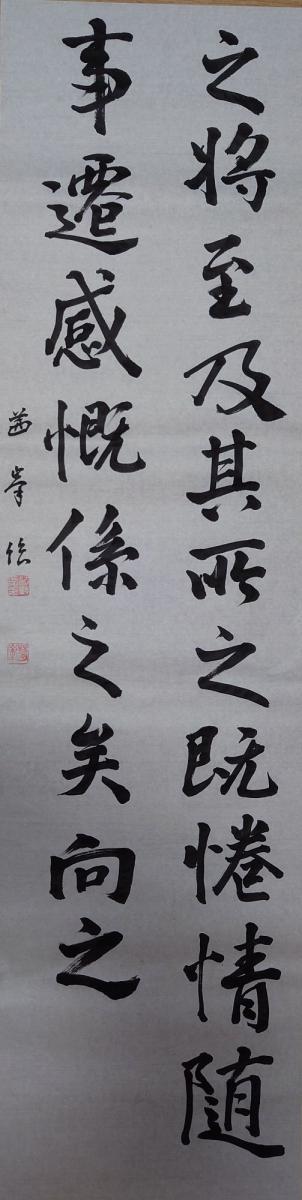 之将至及其所之既惓情随
事遷感慨係之矣向之
峯臨